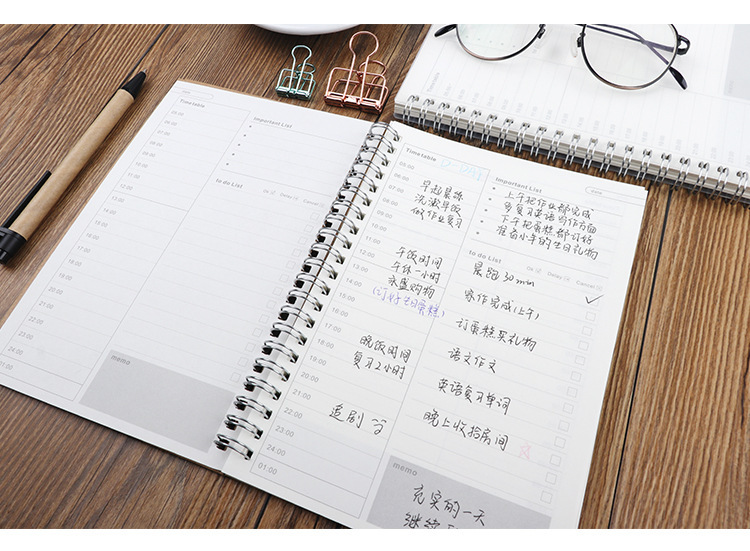 Timetable
05:00
06:00
07:00
08:00
09:00
10:00
11:00
12:00
13:00
14:00
15:00
16:00
17:00
18:00
19:00
20:00
21:00
22:00
23:00
24:00
01:00
Important List
to do List
memo
Timetable
05:00
06:00
07:00
08:00
09:00
10:00
11:00
12:00
13:00
14:00
15:00
16:00
17:00
18:00
19:00
20:00
21:00
22:00
23:00
24:00
01:00
早起晨练
洗漱早饭
做作业复习
午饭时间
午休一小时
永盛购物
(订好生日蛋糕)
晚饭时间
复习2小时
追剧
Important List
上午把作业都完成
多复习英语写作方面
下午把蛋糕都订好
准备小年的生日礼物
to do List
晨跑30min
家作完成(上午)
订蛋糕买礼物
语文作文
英语复习单词
晚上收拾房间
memo
充实的一天
Timetable